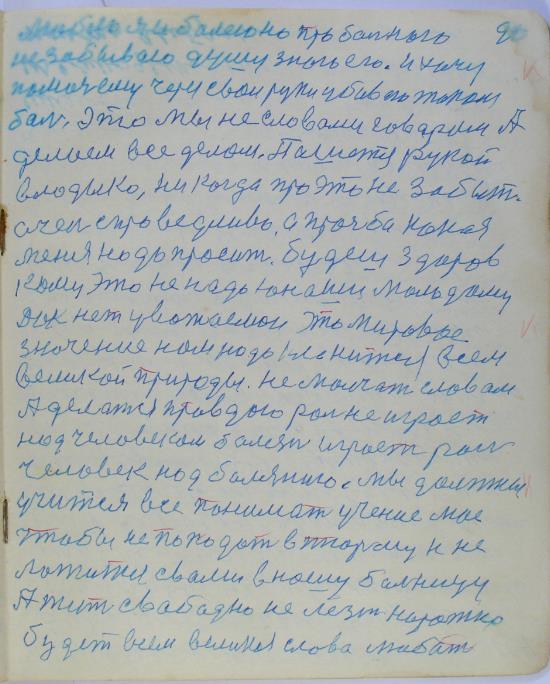 любил я и болею но про балного 90
незабываю душу знаю его. и хочу
помоч ему чериз свои руки убиваю током
бал. Это мы не словами говарим А
делаем все делом. Пишется рукой
владыко, ни когда про это не забыт.
очен справедливо, а прочба какая
меня надо просит. будеш здаров
кому это не надо юнаши молодому
дык нет уважаемои это мировое
значение нам надо кленится всем
великой природы. не молчат словам
А делатся правдаю рол не играет
над человеком болезн играет рол
человек над балячкаю. мы должны
учится все понимат учение мое
чтобы не попадат в тюрму и не
ложится с вами в ношу балницу
А жит свабадно не лезт на рожно
будет всем великия слова любат